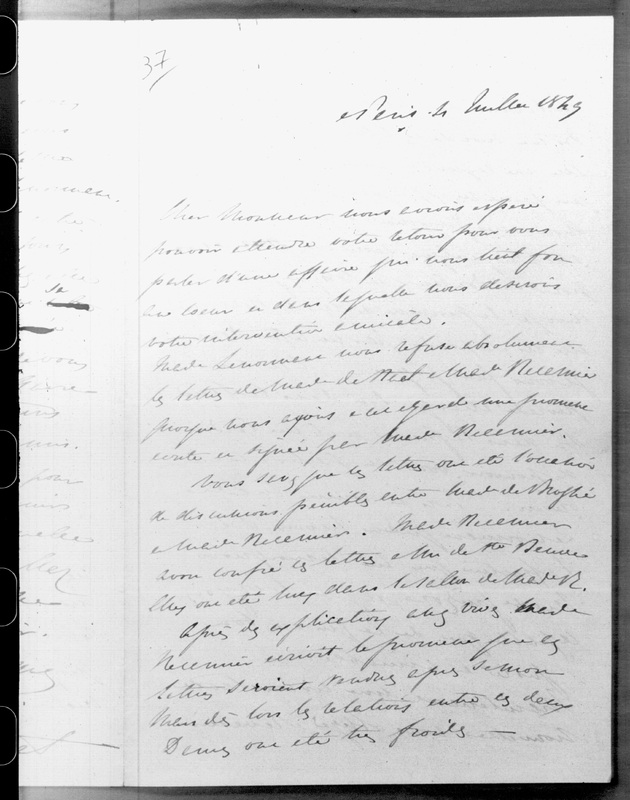 37
Paris 4 Juillet 1849
Cher Monsieur nous avions espéré
pouvoir attendre votre retour pour vous
parler d'une affaire qui nous tient fort
au coeur et dans laquelle nous desirons
votre intervention amicale.
Made Lenormant nous refuse absolument
les lettres de Made de Stael a Made Recamier
quoique nous ayons a cet egard une promesse
ecrite et signée par Made Recamier.
Vous savez que ces lettres ont été l'occasion
de discussions penibles entre Made de Broglie
et Made Recamier. Made Recamier
avait confié ces lettres a Mr de Ste Beuve
elles ont été lues dans le salon de Made R.
Après des explications assez vives Made
Recamier écrivit la promesse que ces
lettres seroient rendues apres sa mort
Mais dès lors les relations entre ces deux
Dames ont été très froides —